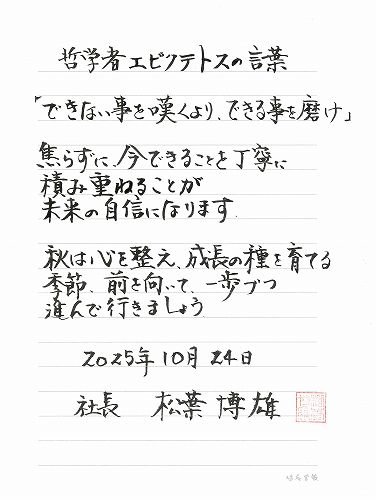 哲学者エピクテトスの言葉
「できない事を嘆くより、できる事を磨け」
焦らずに、今できることを丁寧に
積み重ねることが
未来の自信になります
秋は心を整え、成長の種を育てる
季節、前を向いて、一歩づつ
進んで行きましょう
2025年10月24日
社長 松葉 博雄